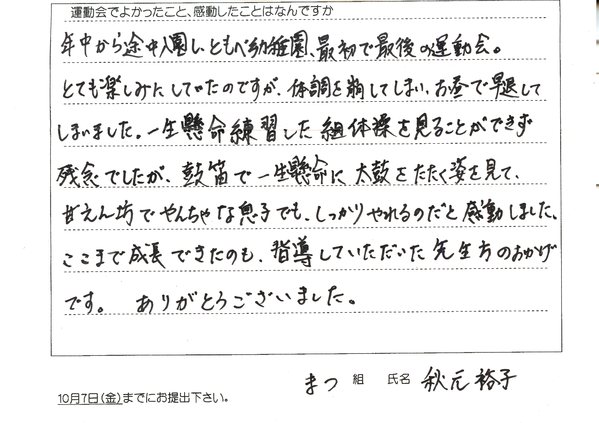 運動会でよかったこと、感動したことはなんですか
年中から途中入園し、ともべ幼稚園、最初で最後の運動会。
とても楽しみにしていたのですが、体調を崩してしまい、お昼で早退して
しまいました。一生懸命練習した組体操を見ることができず
残念でしたが、鼓笛で一生懸命に太鼓をたたく姿を見て、
甘えん坊でやんちゃな息子でも、しっかりやれるのだと感動しました。
ここまで成長できたのも、指導していただいた先生方のおかげ
です。 ありがとうございました。
まつ 組 氏名 秋元裕子
10月7日(金)までにお提出下さい。